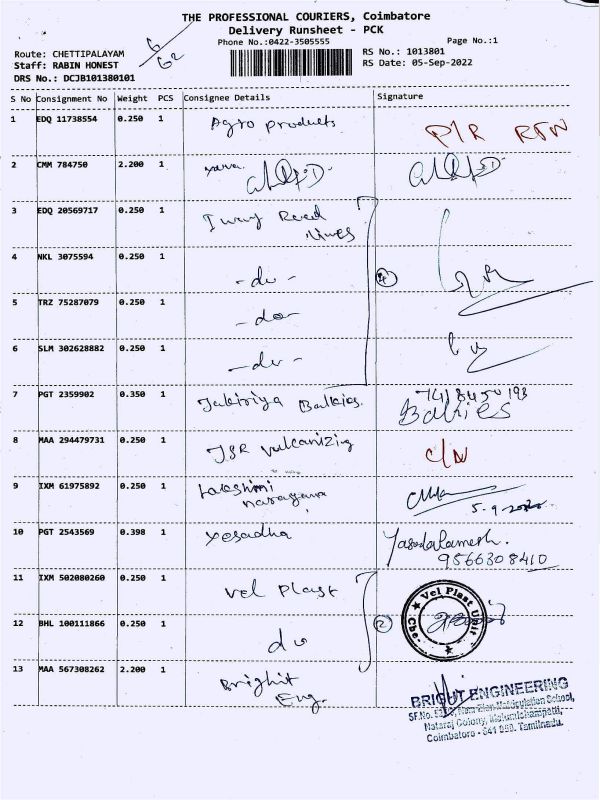 THE PROFESSIONAL COURIERS, Coimbatore
Delivery Runsheet - PCK
Phone No.:0422-3505555
Page No.:1
6/62
Route: CHETTIPALAYAM
Staff: RABIN HONEST
DRS No.: DCJB101380101
RS No.: 1013801
RS Date: 05-Sep-2022
S No Consignment No Weight PCS Consignee Details Signature
1 EDQ 11738554 0.250 1 Agro products P/R
2 CMM 784750 2.200 1
3 EDQ 20569717 0.250 1
lines
4 NKL 3075594 0.250 1 - do - 4
5 TRZ 75287079 0.250 1 - do -
6 SLM 302628882 0.250 1 - do -
7 PGT 2359902 0.350 1 Balkies
Balkies
8 MAA 294479731 0.250 1 JSR vulcanizing C/N
9 IXM 61975892 0.250 1 Lakshmi
narayana
10 PGT 2543569 0.398 1 Yesadha
9566308410
11 IXM 502080260 0.250 1 Vel Plast
Vel Plast Unit
12 BHL 100111866 0.250 1 do 2
13 MAA 567308262 2.200 1 Bright
Eng.
BRIGHT ENGINEERING
Nataraj Colony,
Coimbatore - 641 Tamilnadu.